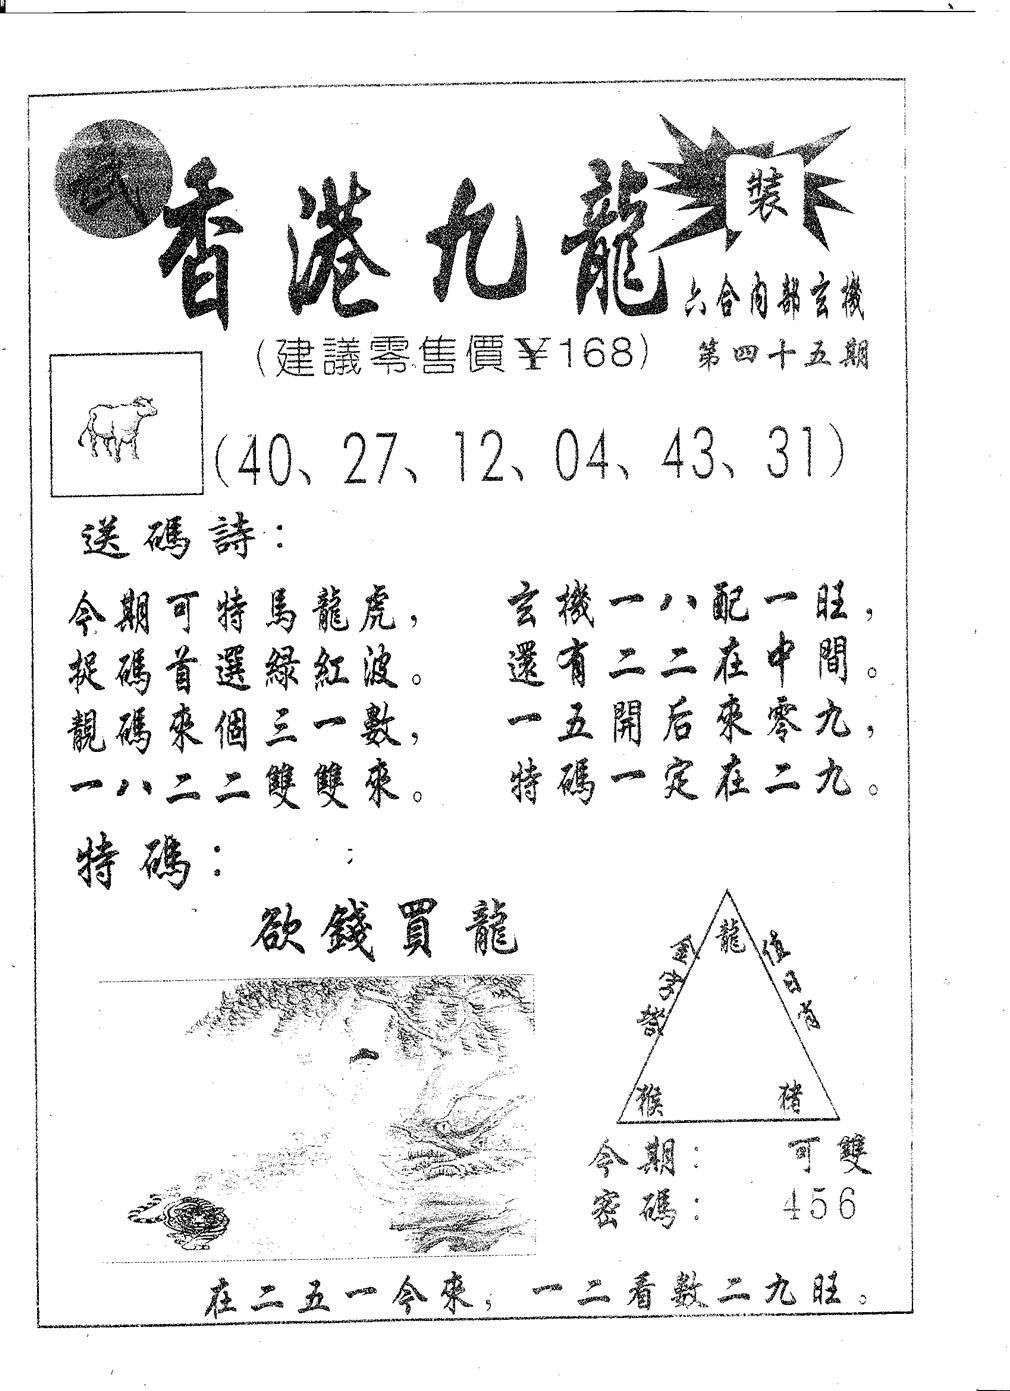 武
香港九龍
裝
六合内部玄機
(建議零售價¥168)
第四十五期
(40、27、12、04、43、31)
送碼詩：
今期可特馬龍虎，
捉碼首選綠紅波。
靚碼來個三一數，
一八二二雙雙來。
玄機一八配一旺，
還有二二在中間。
一五開后來零九，
特碼一定在二九。
特碼：
欲錢買龍
龍
值日肖
猴
猪
今期： 可雙
密碼： 456
在二五一今來，一二看數二九旺。